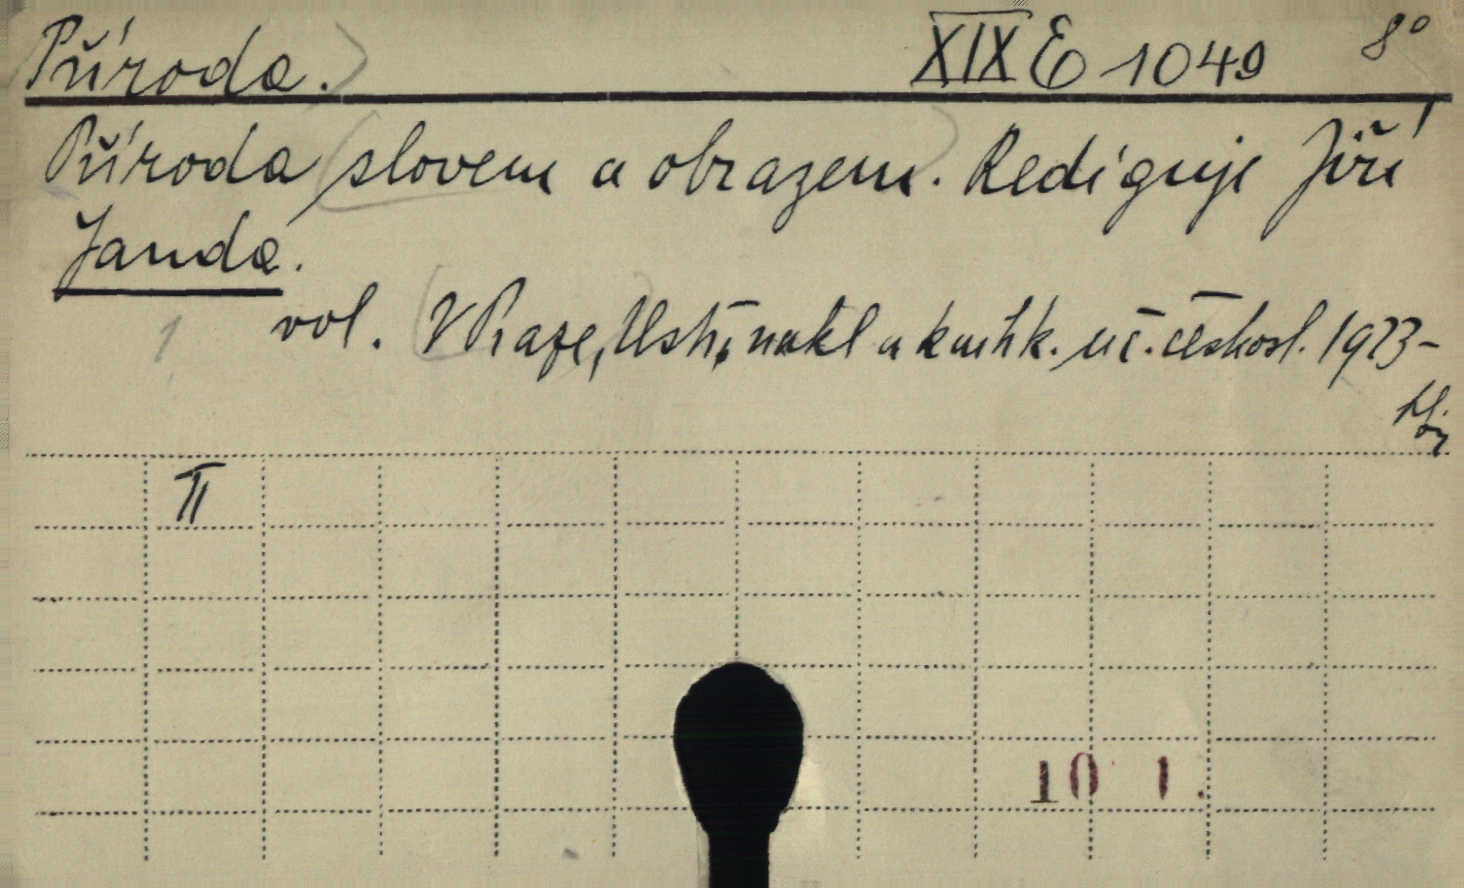 Příroda. XIX E 1049 8°
Příroda slovem a obrazem. Rediguje Jiří
Janda.
1 vol. V Praze, Ústř. nakl a knihk. uč. českosl. 1923-
II
10 1.